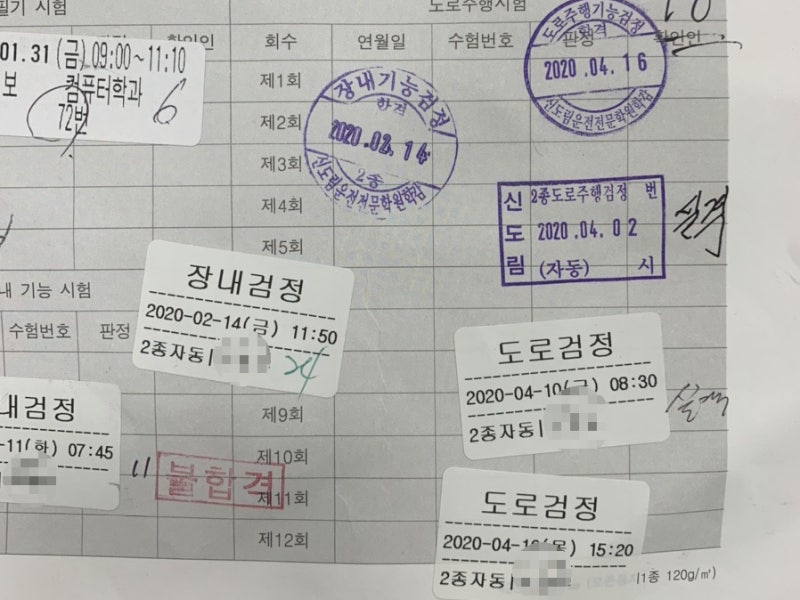 필기 시험
도로주행시험
확인인
회수
연월일
수험번호
판정
확인인
01.31(금) 09:00~11:10
보 컴퓨터학과 6
72번
제1회
제2회
제3회
제4회
제5회
장내기능검정
합격
2020.02.14
2종
신도림운전전문학원학감
도로주행기능검정
합격
2020.04.16
신도림운전전문학원학감
신도림
2종도로주행검정 번
2020.04.02
(자동) 시
실격
내 기능 시험
수험번호
판정
장내검정
2020-02-14(금) 11:50
2종자동
24
도로검정
2020-04-10(금) 08:30
2종자동
실격
내검정
-11(화) 07:45
11
불합격
제9회
제10회
제11회
제12회
도로검정
2020-04-16(목) 15:20
2종자동
1종 120g/㎡)